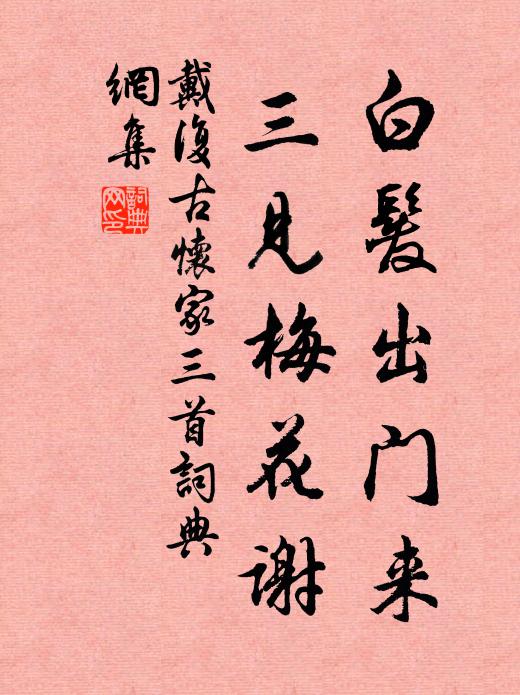 白髮出门来
三见梅花谢
戴復古懷家三首詞典
網集
詞典
网印